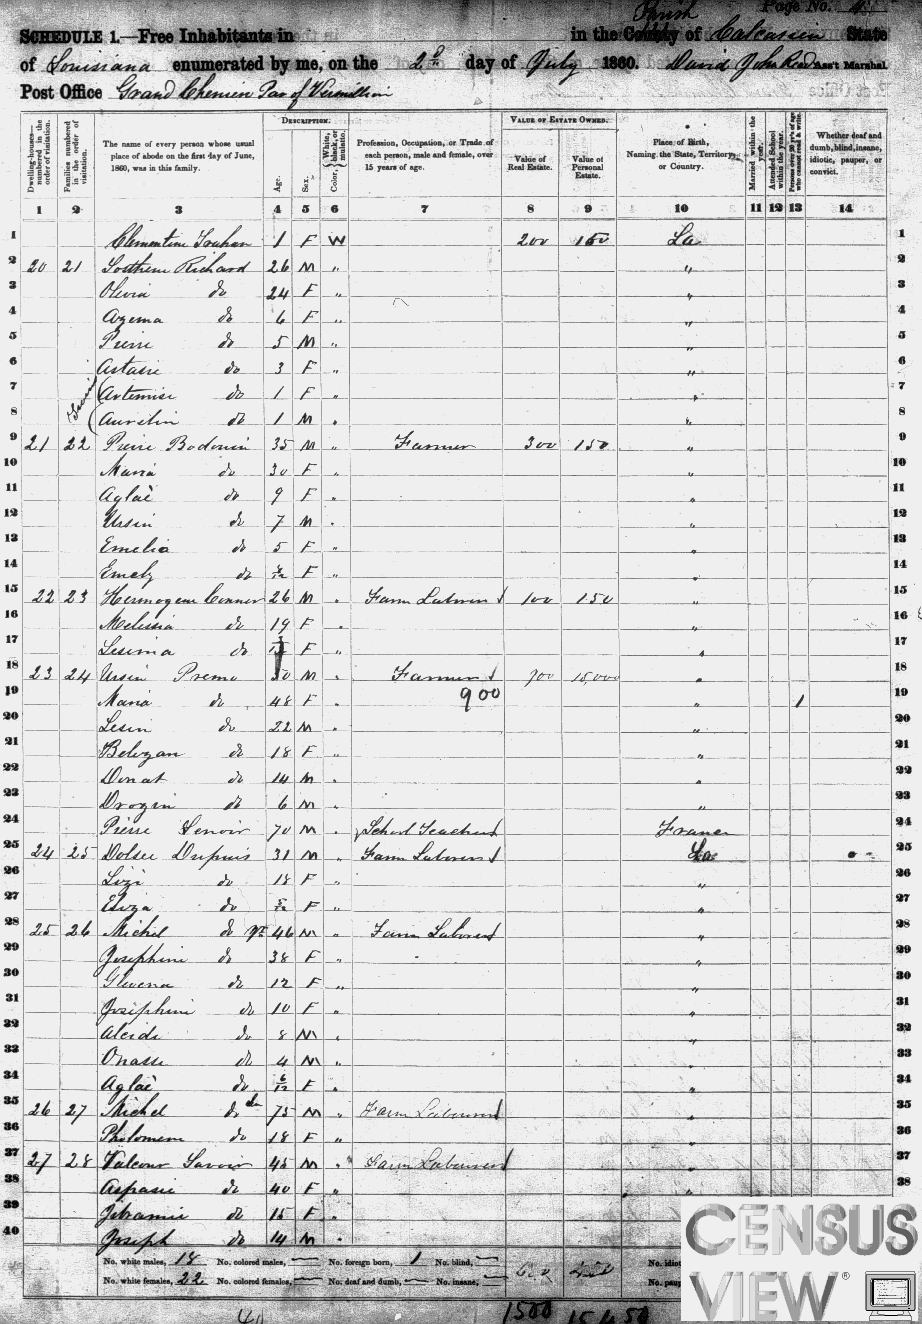 Page No. 4
SCHEDULE 1.—Free Inhabitants in in the County of Parish Calcassiu State
of Louisiana enumerated by me, on the 2d day of July 1860. David John Read Ass't Marshal
Post Office Grand Chenien Par of Vermillion
Dwelling-houses—numbered in the order of visitation.
Families numbered in the order of visitation.
The name of every person whose usual place of abode on the first day of June, 1860, was in this family.
DESCRIPTION.
Age.
Sex.
Color, { White, black, or mulatto.
Profession, Occupation, or Trade of each person, male and female, over 15 years of age.
VALUE OF ESTATE OWNED.
Value of Real Estate.
Value of Personal Estate.
Place of Birth, Naming the State, Territory, or Country.
Married within the year.
Attended School within the year.
Persons over 20 y'rs of age who cannot read & write.
Whether deaf and dumb, blind, insane, idiotic, pauper, or convict.
1 2 3 4 5 6 7 8 9 10 11 12 13 14
1 Clementine Trahan 1 F W 200 150 La 1
2 20 21 Richard 26 M " " 2
3 Olivia do 24 F " " 3
4 Azema do 6 F " " 4
5 Pierre do 5 M " " 5
6 Astasie do 3 F " " 6
7 Artemise do 1 F " " 7
8 Aurelin do 1 M " " 8
9 21 22 Pierre Bodouin 35 M " Farmer 300 150 " 9
10 Maria do 30 F " " 10
11 Aglaè do 9 F " " 11
12 Ursin do 7 M " " 12
13 Emelia do 5 F " " 13
14 Emely do F " " 14
15 22 23 Hermogene Connor 26 M " Farm Laborer 100 150 " 15
16 Melissia do 19 F " " 16
17 Lesima do F " " 17
18 23 24 Ursin Premo 50 M " Farmer 900 15,000 " 18
19 Maria do 48 F " 900 " 1 19
20 Lesin do 22 M " " 20
21 Belozan do 18 F " " 21
22 Donat do 14 M " " 22
23 Drozin do 6 M " " 23
24 Pierre Lenoir 70 M " School Teacher France 24
25 24 25 Dolsee Dupuis 31 M " Farm Laborer La 25
26 Lizi do 18 F " " 26
27 Eliza do F " " 27
28 25 26 Michel do 46 M " Farm Laborer " 28
29 Josephine do 38 F " " 29
30 do 12 F " " 30
31 Josephine do 10 F " " 31
32 Alcide do 8 M " " 32
33 Onasse do 4 M " " 33
34 Aglaè do 6/12 F " " 34
35 26 27 Michel do 75 M " Farm Laborer " 35
36 Philomene do 18 F " " 36
37 27 28 Valcour Savoir 45 M " Farm Laborer 37
38 Aspasie do 40 F " " 38
39 do 15 F "
40 Joseph do 14 M "
No. white males, 18 No. colored males, — No. foreign born, 1 No. blind, — No. idiot
No. white females, 22 No. colored females, — No. deaf and dumb, — No. insane, — No. paup
1500 15450
40
CENSUS
VIEW ®